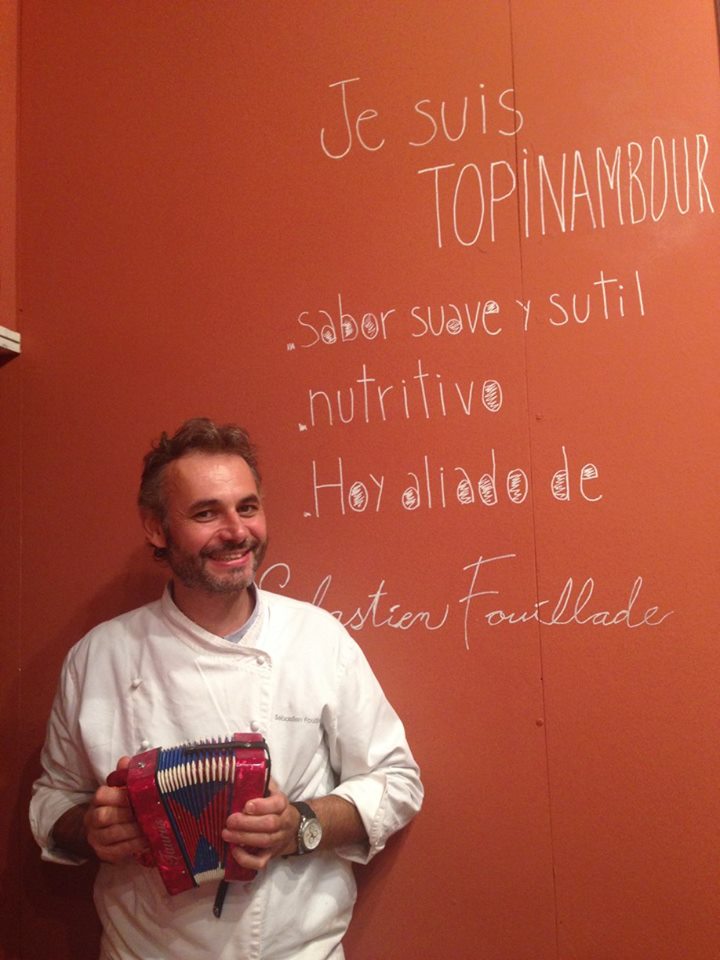 Je suis
TOPINAMBOUR
.sabor suave y sutil
.nutritivo
.Hoy aliado de
Sebastien Fouillade
Sébastien